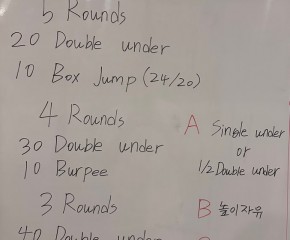 5 Rounds
20 Double under
10 Box Jump (24/20)
4 Rounds
30 Double under
10 Burpee
3 Rounds
40 Double under
A Single under
or
1/2 Double under
B 높이자유